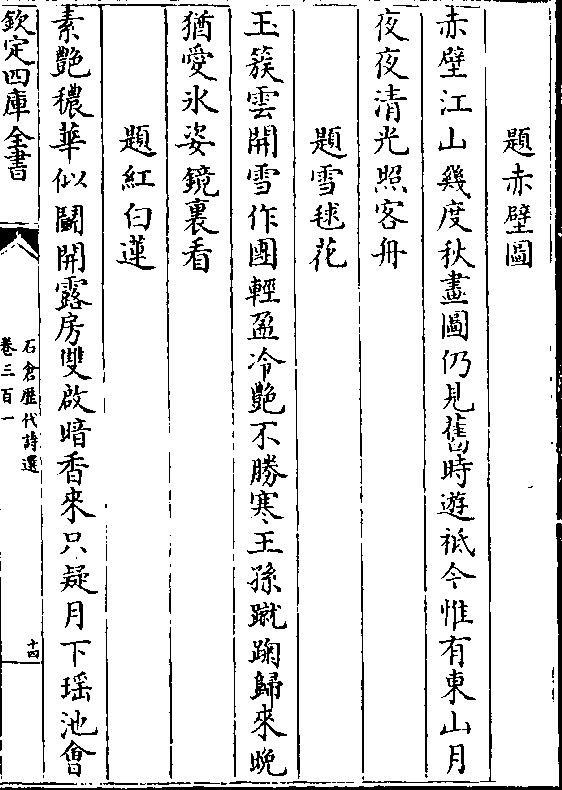 題赤壁圖
赤壁江山幾度秋畫圖仍見舊時遊祗今惟有東山月
夜夜清光照客舟
題雪毬花
玉簇雲開雪作團輕盈冷艶不勝寒王孫蹴踘歸來晩
猶愛氷姿鏡裏看
題紅白蓮
素艶穠華似鬭開露房雙啟暗香來只疑月下瑶池會
欽定四庫全書
石倉歴代詩選
卷三百一
十四